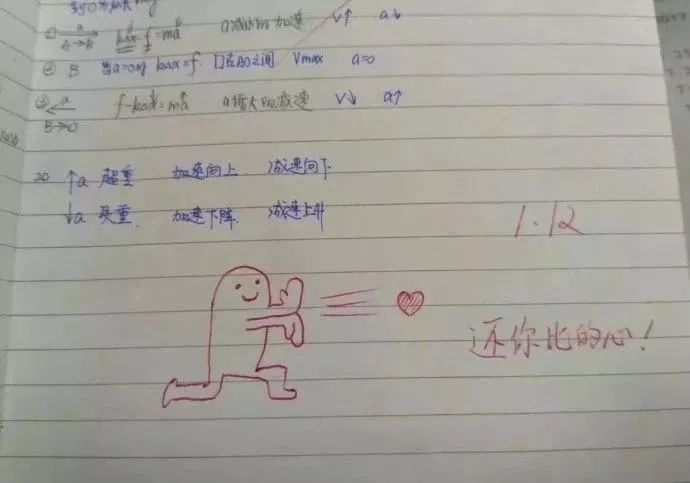 ① a A→B kΔx-f=ma a减小的加速 V↑ a↓
② B 当a=0时 kΔx=f. 口在AO之间 Vmax a=0
③ a B→O f-kΔx=ma a增大的减速 V↓ a↑
20 ↑a 超重 加速向上 减速向下
↓a 失重 加速下降 减速上升
1.12
还你比的心!